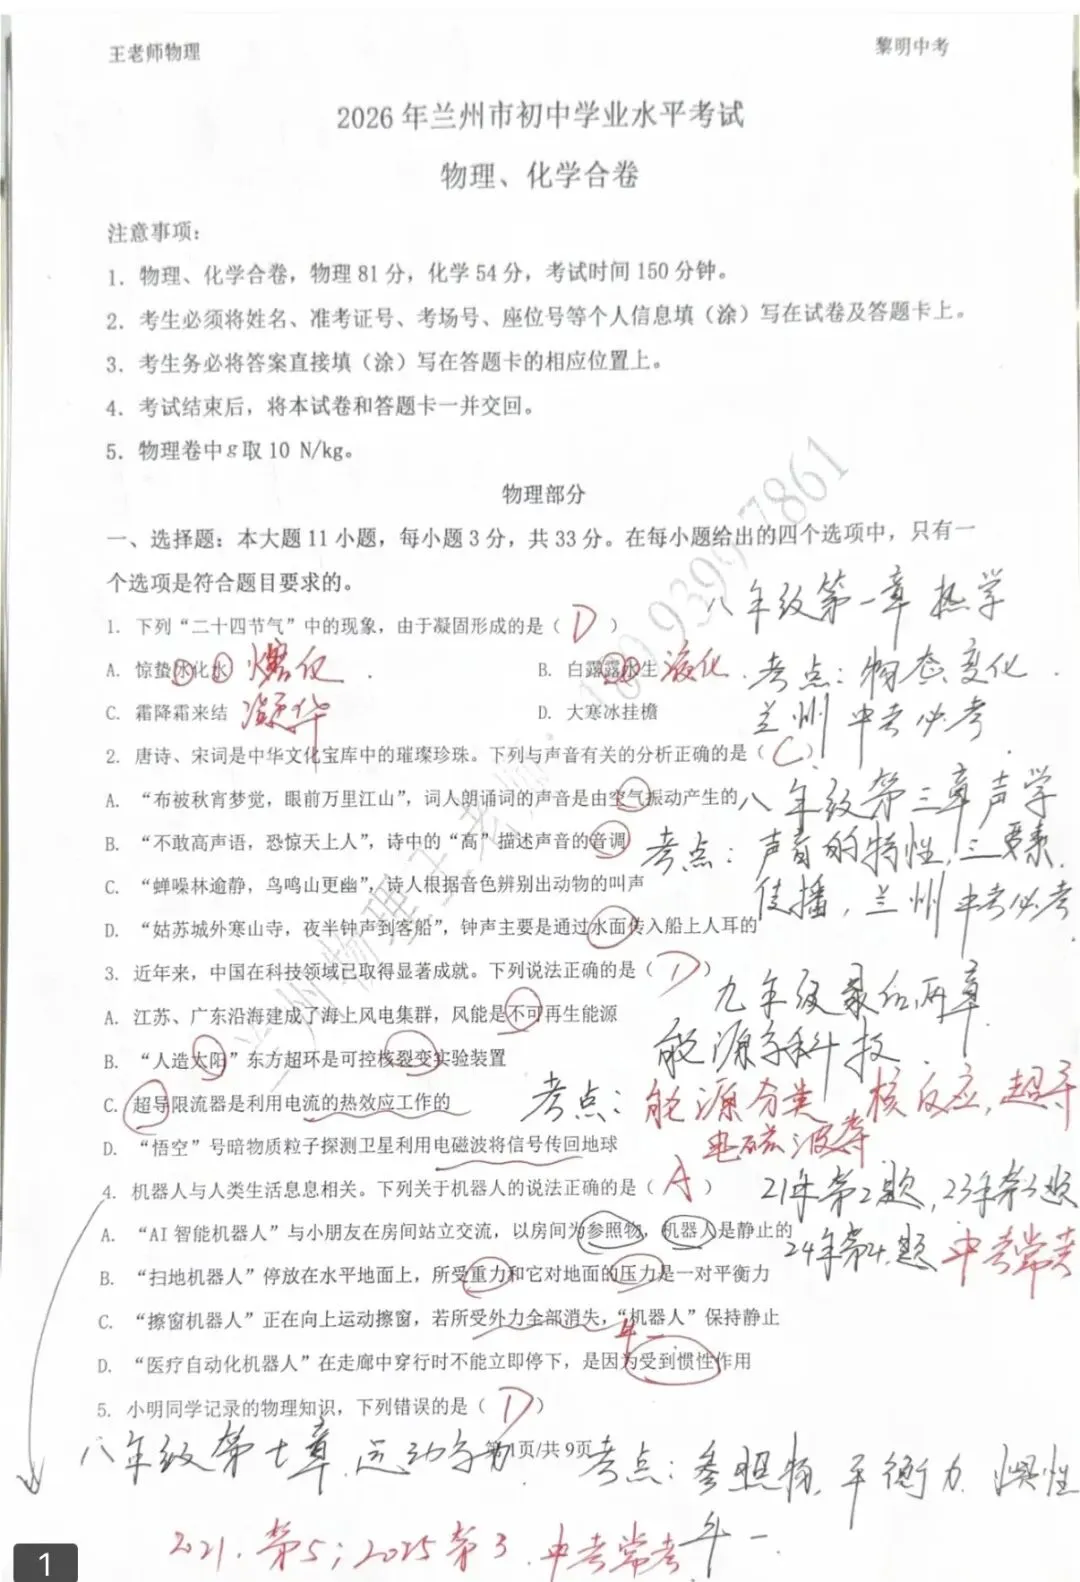 王老师物理
黎明中考
2026年兰州市初中学业水平考试
物理、化学合卷
注意事项：
1. 物理、化学合卷，物理81分，化学54分，考试时间150分钟。
2. 考生必须将姓名、准考证号、考场号、座位号等个人信息填（涂）写在试卷及答题卡上。
3. 考生务必将答案直接填（涂）写在答题卡的相应位置上。
4. 考试结束后，将本试卷和答题卡一并交回。
5. 物理卷中g取10 N/kg。
物理部分
一、选择题：本大题11小题，每小题3分，共33分。在每小题给出的四个选项中，只有一
个选项是符合题目要求的。
八年级第一章 热学
1. 下列“二十四节气”中的现象，由于凝固形成的是（ D ）
A. 惊蛰冰化水 熔化
B. 白露露水生 液化
考点：物态变化
C. 霜降霜来结 凝华
D. 大寒冰挂檐
兰州中考必考
2. 唐诗、宋词是中华文化宝库中的璀璨珍珠。下列与声音有关的分析正确的是（ C ）
A. “布被秋宵梦觉，眼前万里江山”，词人朗诵词的声音是由空气振动产生的
八年级第三章声学
B. “不敢高声语，恐惊天上人”，诗中的“高”描述声音的音调
考点：声音的特性，三要素，
C. “蝉噪林逾静，鸟鸣山更幽”，诗人根据音色辨别出动物的叫声
传播，兰州中考必考
D. “姑苏城外寒山寺，夜半钟声到客船”，钟声主要是通过水面传入船上人耳的
3. 近年来，中国在科技领域已取得显著成就。下列说法正确的是（ D ）
九年级最后两章
A. 江苏、广东沿海建成了海上风电集群，风能是不可再生能源
能源与科技
B. “人造太阳”东方超环是可控核裂变实验装置
C. 超导限流器是利用电流的热效应工作的
考点：能源分类 核反应，超导
电磁波等
D. “悟空”号暗物质粒子探测卫星利用电磁波将信号传回地球
4. 机器人与人类生活息息相关。下列关于机器人的说法正确的是（ A ）
21年第2题，23年第3题
A. “AI智能机器人”与小朋友在房间站立交流，以房间为参照物，机器人是静止的
24年第4题 中考常考
B. “扫地机器人”停放在水平地面上，所受重力和它对地面的压力是一对平衡力
C. “擦窗机器人”正在向上运动擦窗，若所受外力全部消失，“机器人”保持静止
牛一
D. “医疗自动化机器人”在走廊中穿行时不能立即停下，是因为受到惯性作用
5. 小明同学记录的物理知识，下列错误的是（ D ）
八年级第七章 运动与力
第1页/共9页
考点：参照物，平衡力，惯性
牛一
2021.第5；2025第3.中考常考
1